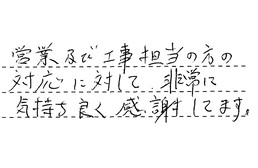 営業及び工事担当の方の
対応に対して、非常に
気持ち良く感謝してます。